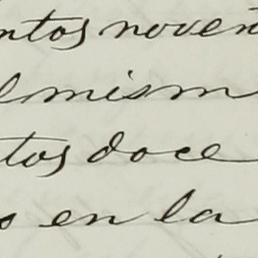 ntos noven
l mism
tos doce
s en la